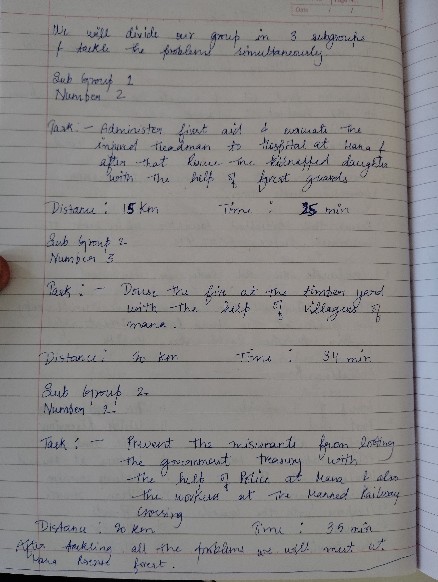 Date
We will divide our group in 3 subgroups
& tackle the problems simultaneously
Sub Group 1
Number 2
Task :- Administer first aid & evacuate the
injured to Hospital at Mana &
after that Rescue the kidnapped daughter
with the help of forest guards
Distance : 15 Km Time : 25 min
Sub Group 2
Number 3
Task : - Douse the fire at the timber yard
with the help of villagers of
mana .
Distance : 20 km Time : 34 min
Sub Group 2.
Number 2.
Task : - Prevent the miscreants from looting
the government treasury with
the help of Police at Mana & also
the workers at the Manned Railway
crossing
Distance : 20 km Time : 35 min
After tackling all the problems we will meet at
Mana Reserve forest .